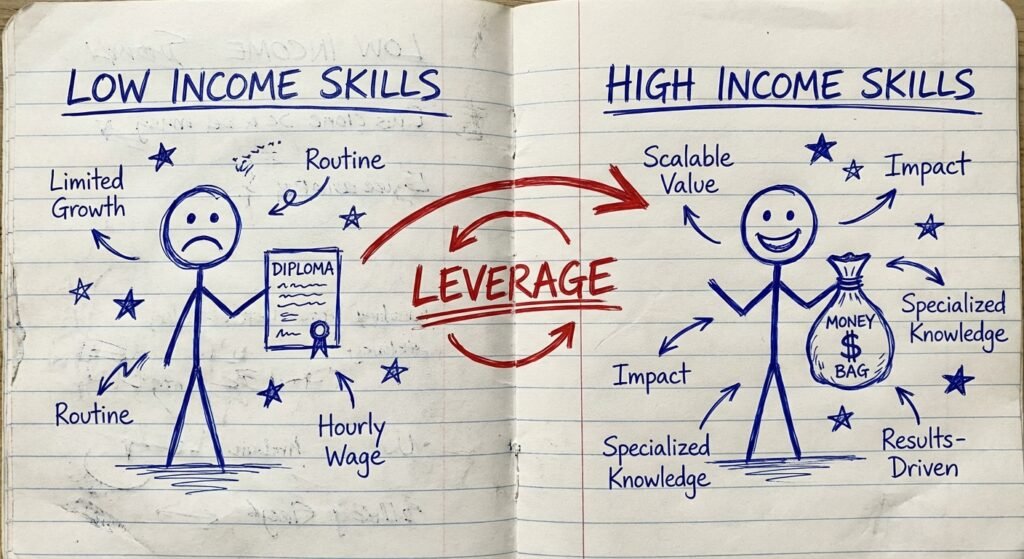 LOW INCOME SKILLS
Routine
Limited
Growth
DIPLOMA
Routine
Hourly
Wage
LEVERAGE
HIGH INCOME SKILLS
Scalable
Value
Impact
Specialized
Knowledge
MONEY
$
BAG
Impact
Specialized
Knowledge
Results-
Driven